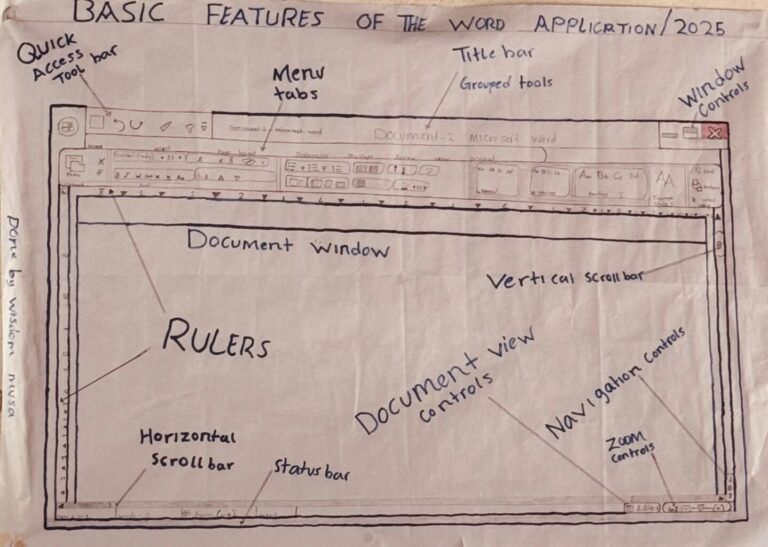 BASIC FEATURES OF THE WORD APPLICATION/2025
QUICK
Access
Tool bar
Menu
tabs
Title bar
Grouped tools
Window
controls
Document-2 Microsoft Word
Document window
Vertical scrollbar
RULERS
Document view
controls
Navigation controls
Zoom
controls
Horizontal
Scrollbar
Status bar
Done by wisdom musa